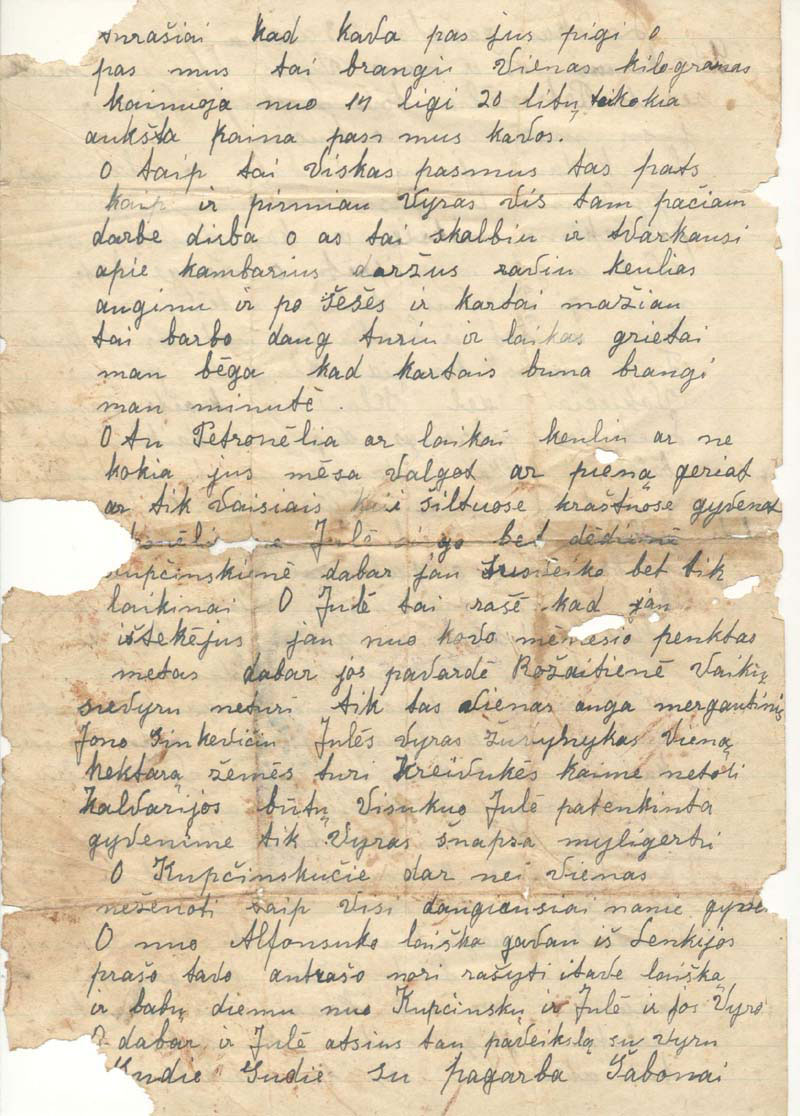 surašiai kad kava pas jus pigi o
pas mus tai brangi vienas kilogramas
kainuoja nuo 17 ligi 20 litų
aukšta kaina pas mus kavos.
O taip tai viskas pasmus tas pats
kaip ir pirmiau Vyras vis tam pačiam
darbe dirba o as tai skalbiu ir tvarkausi
apie kambarius daržus raviu keulias
auginu ir po šešes ir kartai mažiau
tai barbo daug turiu ir laikas grietai
man bėga kad kartais buna brangi
man minutė.
O tu Petronėlia ar laikai keuliu ar ne
kokia jus mėsa valgot ar pieną geriat
ar tik vaisiais šiltuose kraštuose gyvenat
Julė bet dėdienė
dabar jau bet tik
laikinai O Julė tai rašė kad jau
ištekėjus jau nuo kovo mėnesio penktas
metas dabar jos pavardė Rožaitienė vaikų
suvyru neturi tik tas vienas auga mergautinis
Jono Sinkevičiu Julės vyras vieną
hektarą žemės turi Kreivukės kaime netoli
Kalvarijos būtų visukuo Julė patenkinta
gyvenime tik vyras šnapsa myligerti
O Kupčinskučie dar nei vienas
neženoti taip visi daugiausiai namie
O nuo Alfonsuko laiška gavau iš Lenkijos
prašo tavo antrašo nori rašyti itave laišką
ir labų dienu nuo Kupčinskų ir Julė ir jos Vyro
dabar ir Julė atsius tau paveikslą su vyru
Sudie Sudie su pagarba Šabonai